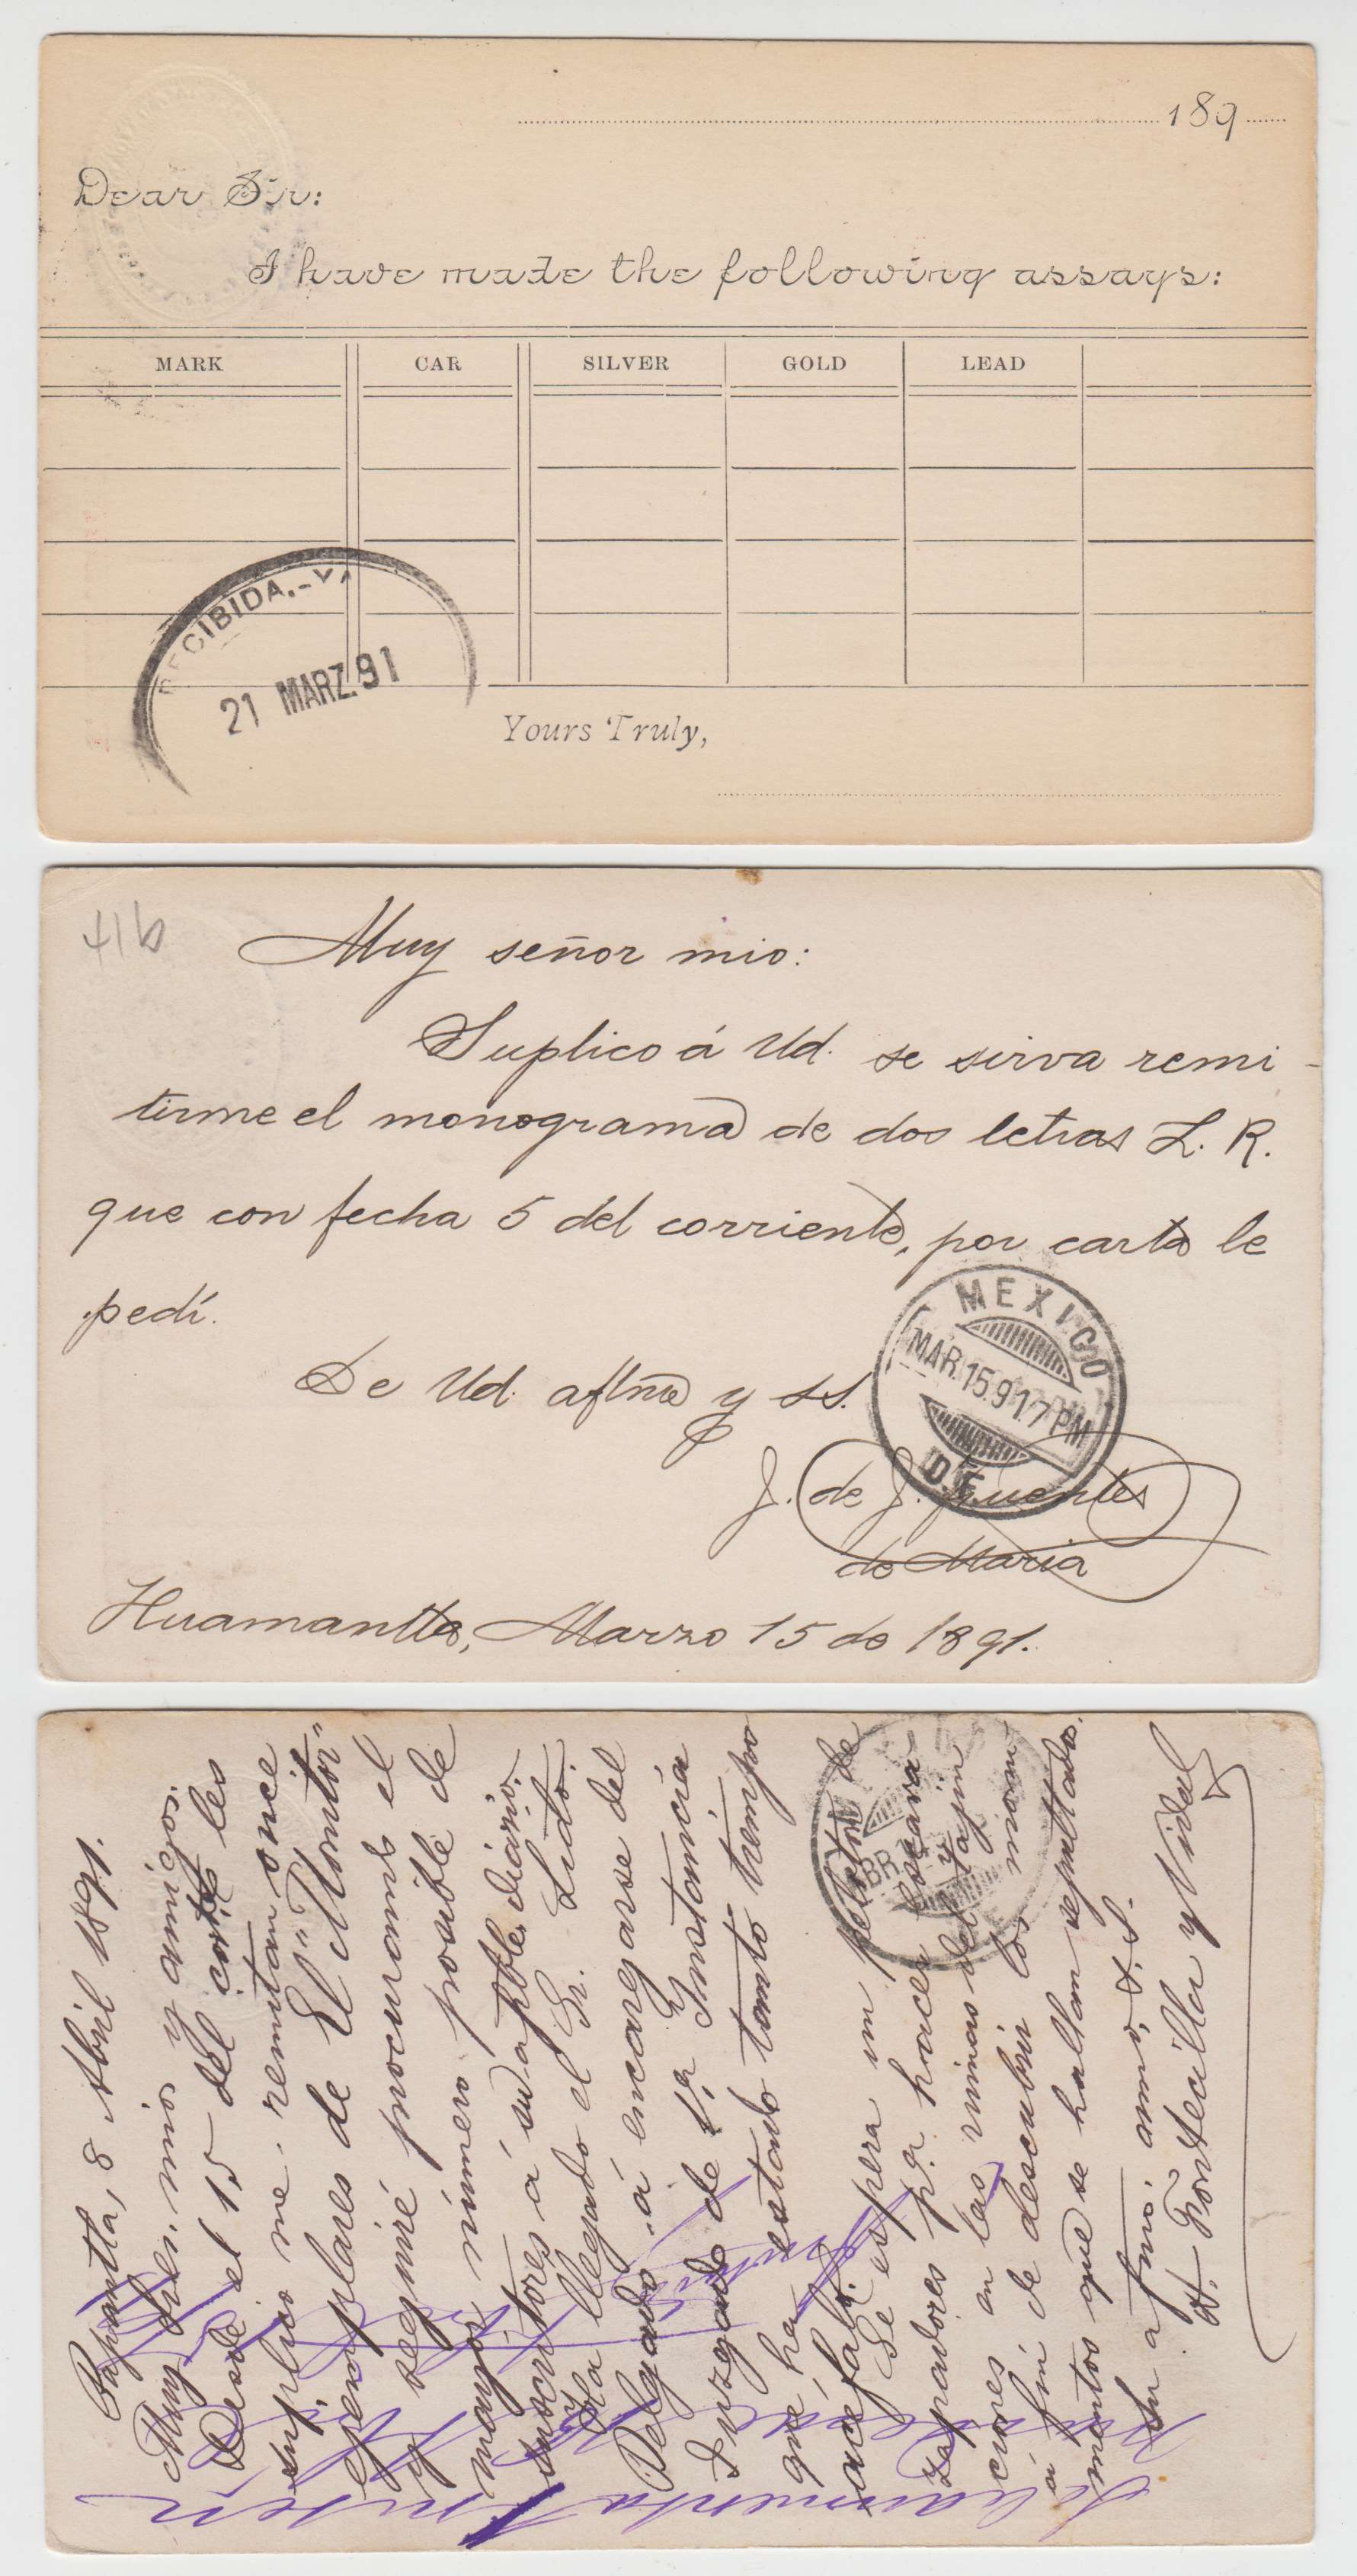 189
Dear Sir:
I have made the following assays:
MARK CAR SILVER GOLD LEAD
RECIBIDA.
21 MARZ.91
Yours Truly,
41b
Muy señor mio:
Suplico á Ud. se sirva remi-
tirme el monograma de dos letras L. R.
que con fecha 5 del corriente, por carta le
pedí.
De Ud. afmo y SS.
J. de J. Fuentes
de Maria
MEXICO
MAR.15.91 7 PM
D.F.
Huamantla, Marzo 15 de 1891.
Papantla, 8 Abril 1891.
Muy Sres. mios y amigos:
Desde el 15 del corrte les
suplico me remitan once
ejemplares de El "Monitor"
y seguiré procurando el
mayor número posible de
suscritores á su apble diario.
Ha llegado el Sr. Lido.
Delgado á encargarse del
Juzgado de 1ra Instancia
que ha estado tanto tiempo
acéfalo.
Se espera un peloton de
zapadores pa hacer escava
ciones en las ruinas del Tajin
a fin de descubrir los monu
mentos que se hallan sepultados.
Su afmo. amo. y S.S.
A. Fontecilla y Vidal